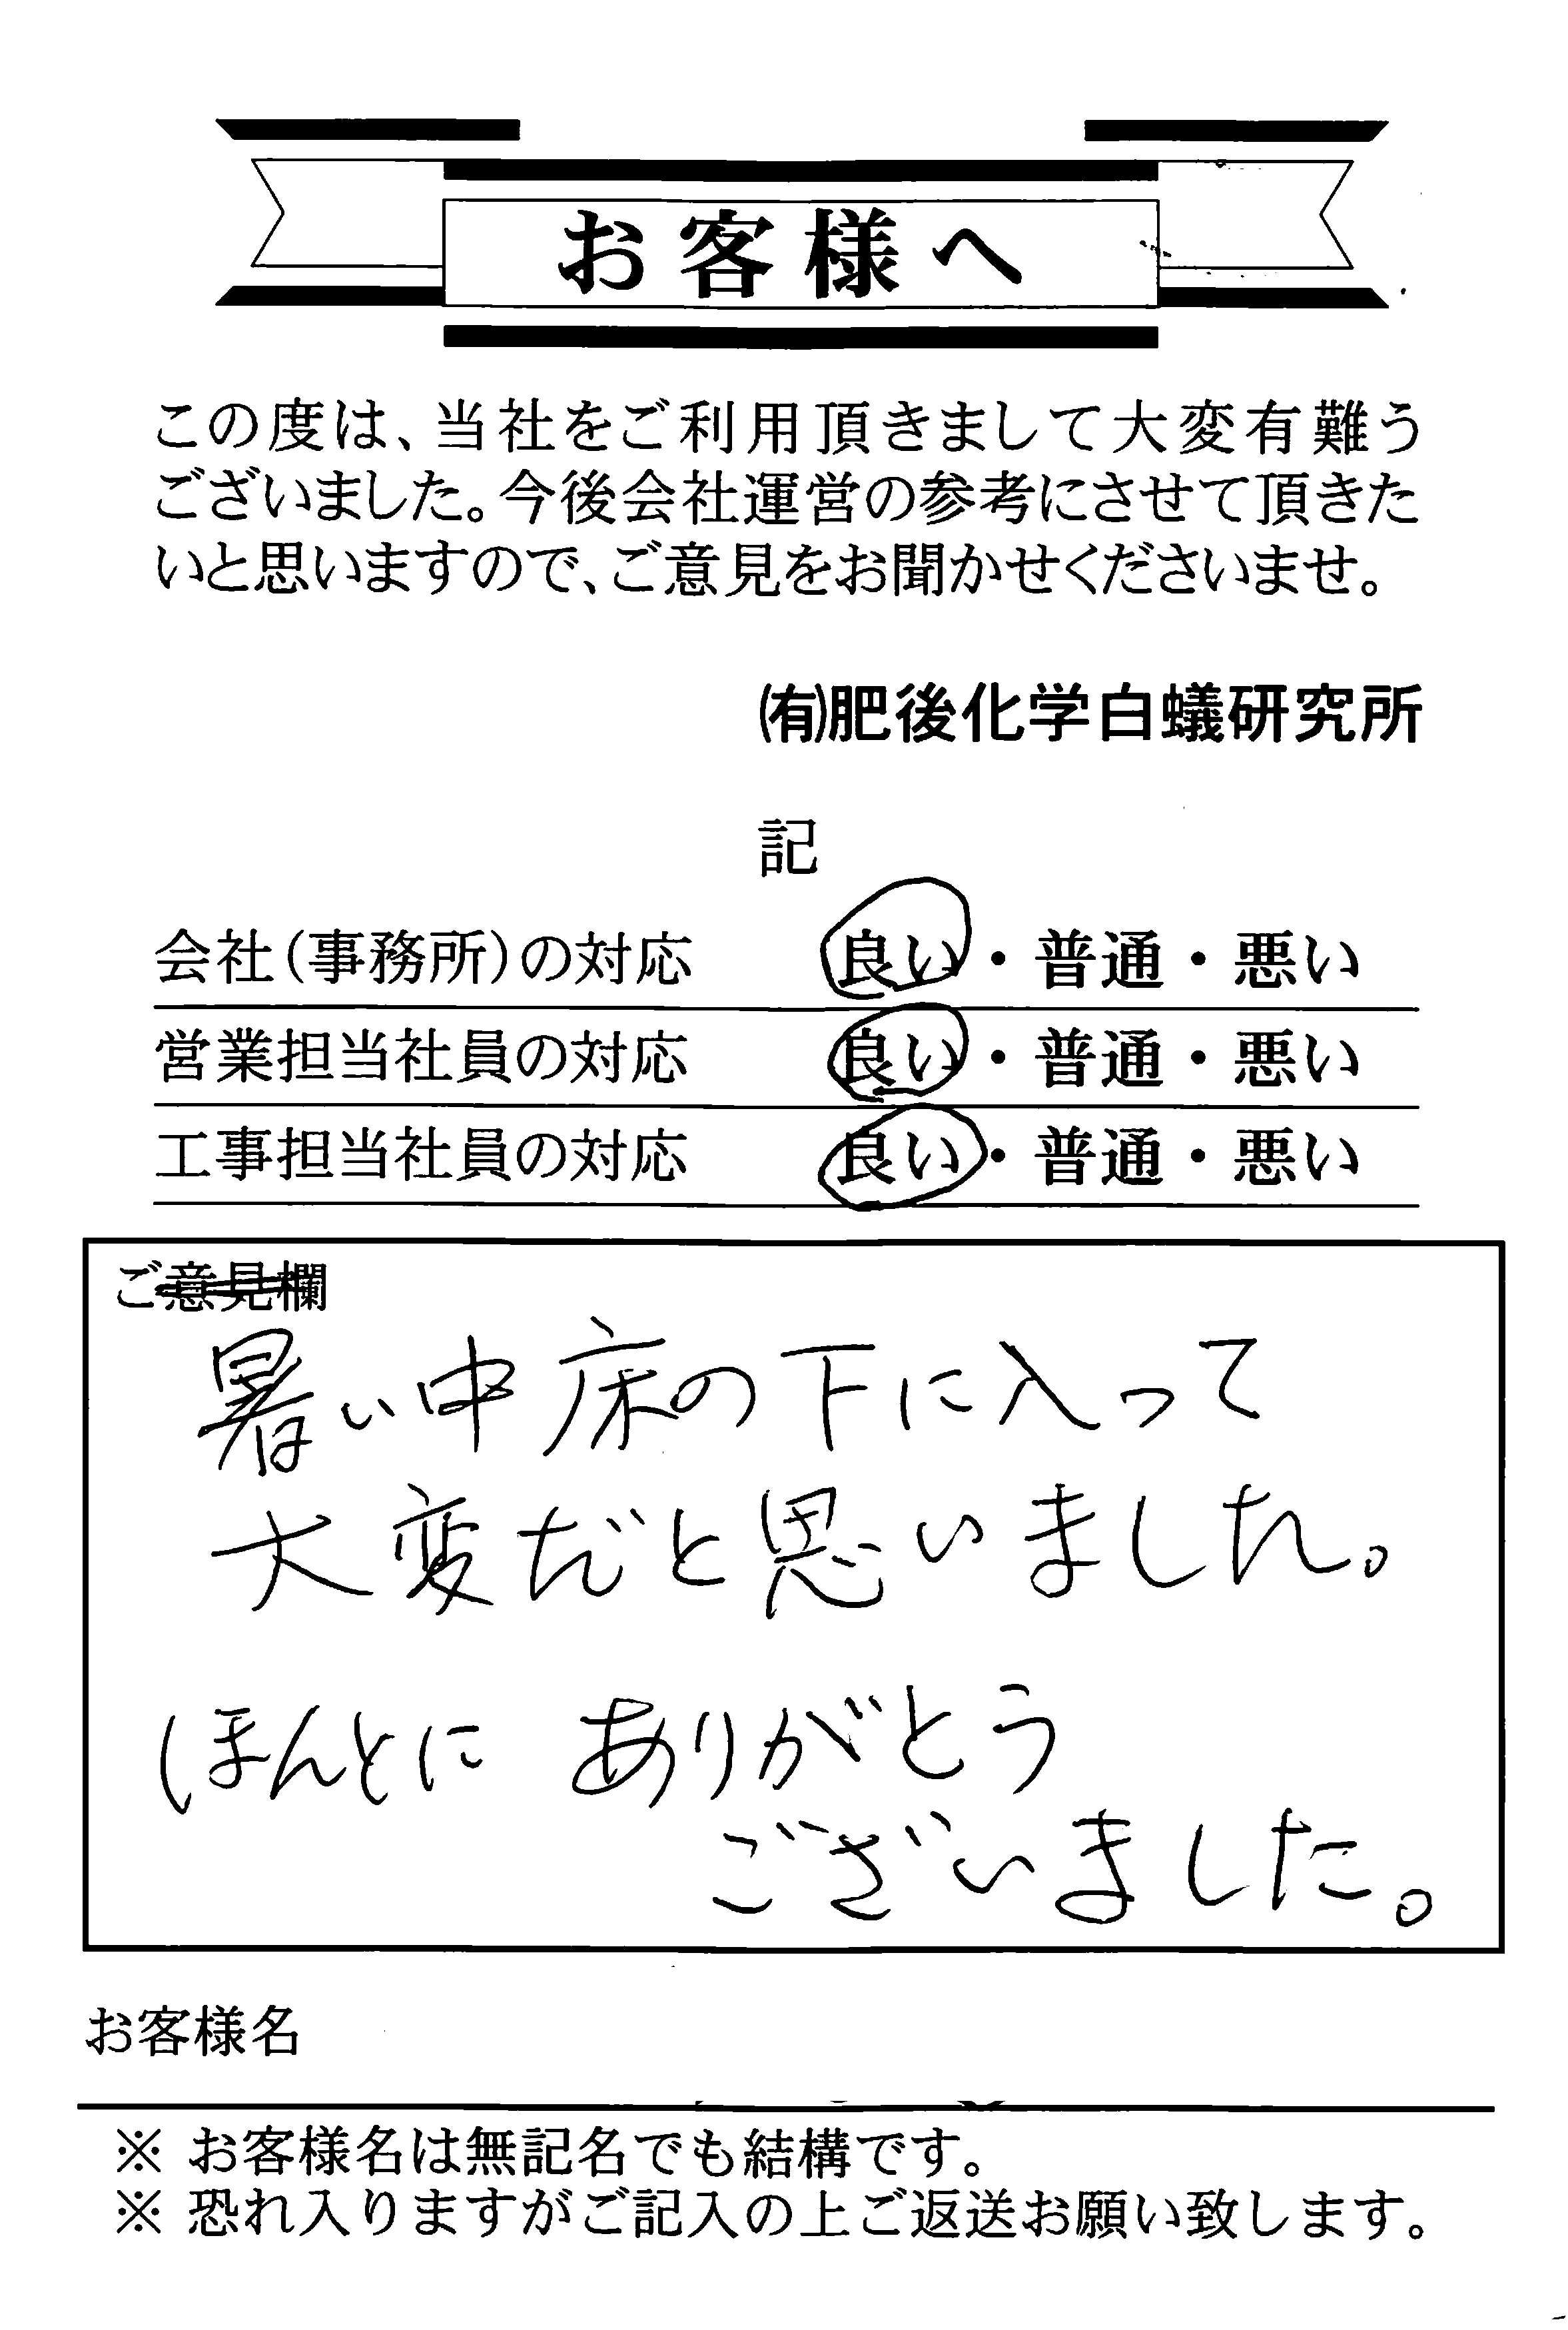 お客様へ
この度は、当社をご利用頂きまして大変有難う
ございました。今後会社運営の参考にさせて頂きた
いと思いますので、ご意見をお聞かせくださいませ。
㈲肥後化学白蟻研究所
記
会社(事務所)の対応 良い・普通・悪い
営業担当社員の対応 良い・普通・悪い
工事担当社員の対応 良い・普通・悪い
ご意見欄
暑い中床の下に入って
大変だと思いました。
ほんとに ありがとう
ございました。
お客様名
※ お客様名は無記名でも結構です。
※ 恐れ入りますがご記入の上ご返送お願い致します。